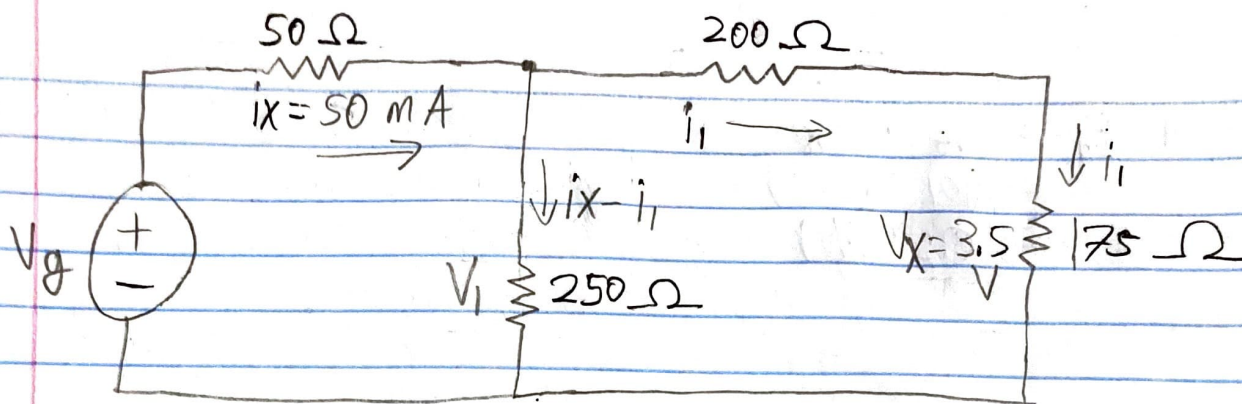 50 Ω
200 Ω
ix = 50 mA
i₁
ix - i₁
i₁
+
Vg
-
V₁
250 Ω
Vx = 3.5
V
175 Ω